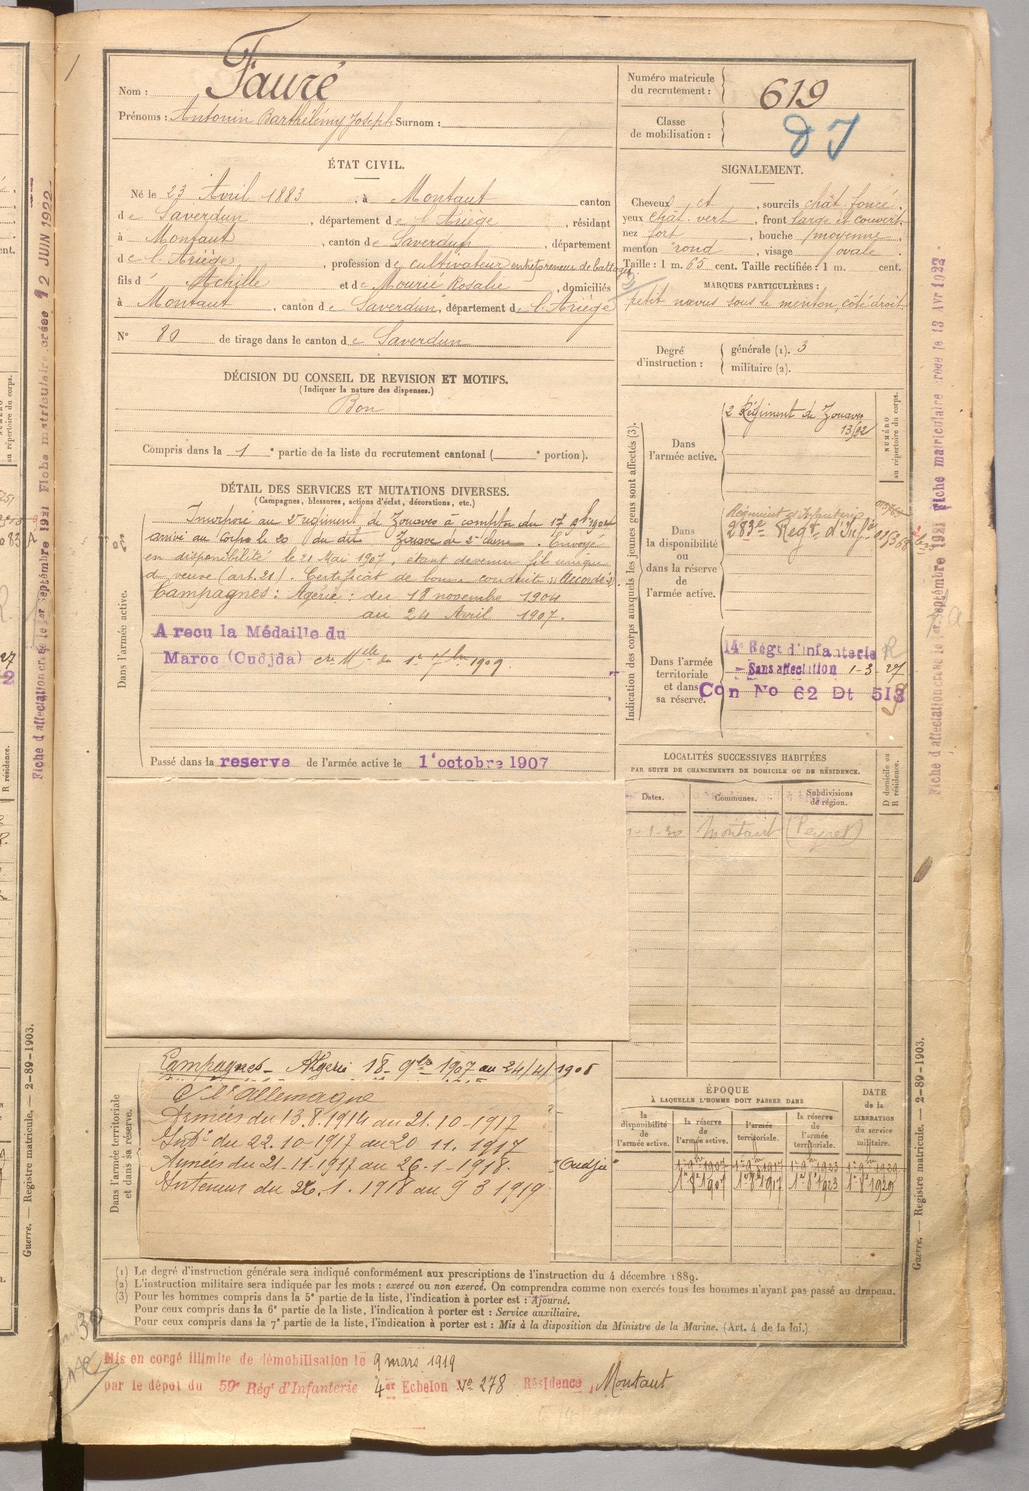 Nom : Fauré
Prénoms : Antonin Barthélémy Joseph Surnom :
Numéro matricule du recrutement : 619
Classe de mobilisation :
ÉTAT CIVIL.
Né le 23 Avril 1883, à Montaut canton
de Saverdun, département de l'Ariège, résidant
à Montaut, canton de Saverdun, département
de l'Ariège, profession de cultivateur entrepreneur de battages
fils d' Achille et de Mourié Rosalie, domiciliés
à Montaut, canton de Saverdun, département de l'Ariège
N° 80 de tirage dans le canton de Saverdun
SIGNALEMENT.
Cheveux et, sourcils chât. foncé.
yeux chât. vert, front large et couvert.
nez fort, bouche moyenne,
menton rond, visage ovale.
Taille : 1 m. 65 cent. Taille rectifiée : 1 m. cent.
MARQUES PARTICULIÈRES :
petit nœvus sous le menton, côté droit
Degré d'instruction : générale (1). 3
militaire (2).
DÉCISION DU CONSEIL DE REVISION ET MOTIFS.
(Indiquer la nature des dispenses.)
Bon
Compris dans la 1e partie de la liste du recrutement cantonal ( e portion).
DÉTAIL DES SERVICES ET MUTATIONS DIVERSES.
(Campagnes, blessures, actions d'éclat, décorations, etc.)
Dans l'armée active.
Incorporé au 2e régiment de Zouaves à compter du 17 9bre 1904
arrivé au corps le 20 du dit Zouave de 2e classe. Envoyé
en disponibilité le 21 Mai 1907, étant devenu fils unique
de veuve (art. 21). Certificat de bonne conduite "Accordé".
Campagnes : Algérie : du 18 novembre 1904
au 24 Avril 1907.
A recu la Médaille du
Maroc (Oudjda)
Passé dans la reserve de l'armée active le 1er octobre 1907
Indication des corps auxquels les jeunes gens sont affectés (3).
NUMÉRO au répertoire du corps.
Dans l'armée active.
2 Régiment de Zouaves
Dans la disponibilité ou dans la réserve de l'armée active.
Régiment d'Infanterie
283e Regt d'Infie
Dans l'armée territoriale et dans sa réserve.
14e Régt d'infanterie
Sans affectation 1-3-27
Con No 62 Dt 513
LOCALITÉS SUCCESSIVES HABITÉES
PAR SUITE DE CHANGEMENTS DE DOMICILE OU DE RÉSIDENCE.
Dates. Communes. Subdivisions de région. D domicile ou R résidence.
Montaut
Dans l'armée territoriale et dans sa réserve.
Campagnes - Algérie 18 9bre 1907 au 24/4/1908
Cre l'allemagne
Armées du 13.8.1914 au 21.10.1917
Intr du 22.10.1917 au 20.11.1917
Armées du 21-11-1917 au 26-1-1918.
Intérieur du 26.1.1918 au 9 3 1919
"Oudjda"
ÉPOQUE
À LAQUELLE L'HOMME DOIT PASSER DANS
DATE de la LIBÉRATION du service militaire.
la disponibilité de l'armée active. la réserve de l'armée active. l'armée territoriale. la réserve de l'armée territoriale.
1er 9bre 1907 1er 9bre 1917 1er 9bre 1923 1er 9bre 1929
1er 8bre 1907 1er 8bre 1917 1er 8bre 1923 1er 8bre 1929
(1) Le degré d'instruction générale sera indiqué conformément aux prescriptions de l'instruction du 4 décembre 1889.
(2) L'instruction militaire sera indiquée par les mots : exercé ou non exercé. On comprendra comme non exercés tous les hommes n'ayant pas passé au drapeau.
(3) Pour les hommes compris dans la 5e partie de la liste, l'indication à porter est : Ajourné.
Pour ceux compris dans la 6e partie de la liste, l'indication à porter est : Service auxiliaire.
Pour ceux compris dans la 7e partie de la liste, l'indication à porter est : Mis à la disposition du Ministre de la Marine. (Art. 4 de la loi.)
Mis en congé illimité de démobilisation le 9 mars 1919
par le dépot du 59e Rég' d'Infanterie 4er Echelon No 278 Résidence, Montaut
Guerre. — Registre matricule. — 2-89-1903.
Guerre. — Registre matricule. — 2-89-1903.